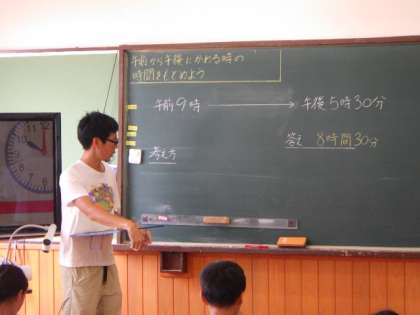 午前から午後にかわる時の
時間をもとめよう
午前9時 → 午後5時30分
答え 8時間30分
考え方